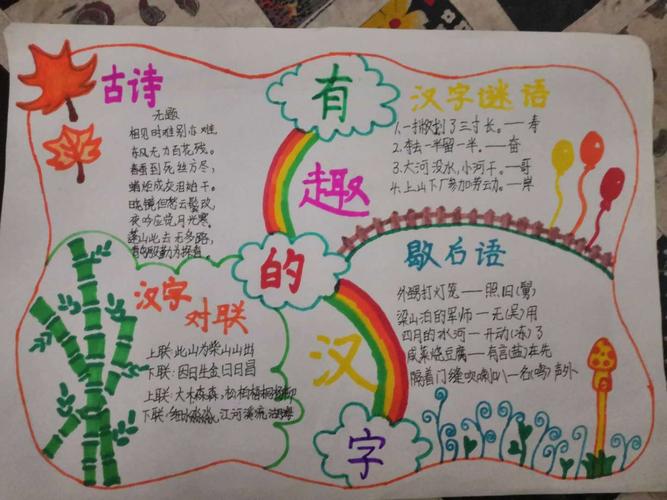 有趣的汉字
古诗
无题
相见时难别亦难,
东风无力百花残。
春蚕到死丝方尽,
蜡炬成灰泪始干。
晓镜但愁云鬓改,
夜吟应觉月光寒。
蓬山此去无多路,
青鸟殷勤为探看。
汉字谜语
1.一撇撇到了三寸长。——寿
2.李去一半留一半。——奋
3.大河没水,小河干。——哥
4.上山下厂参加劳动。——岸
汉字对联
上联:此山为柴山山出
下联:因日生金日日昌
上联:大木森森,松柏梧桐杨柳
下联:细水淼淼,江河溪流湖海
歇后语
外甥打灯笼——照旧(舅)
梁山泊的军师——无(吴)用
四月的冰河——开动(冻)了
咸菜烧豆腐——有言(盐)在先
隔着门缝吹喇叭——名(鸣)声外